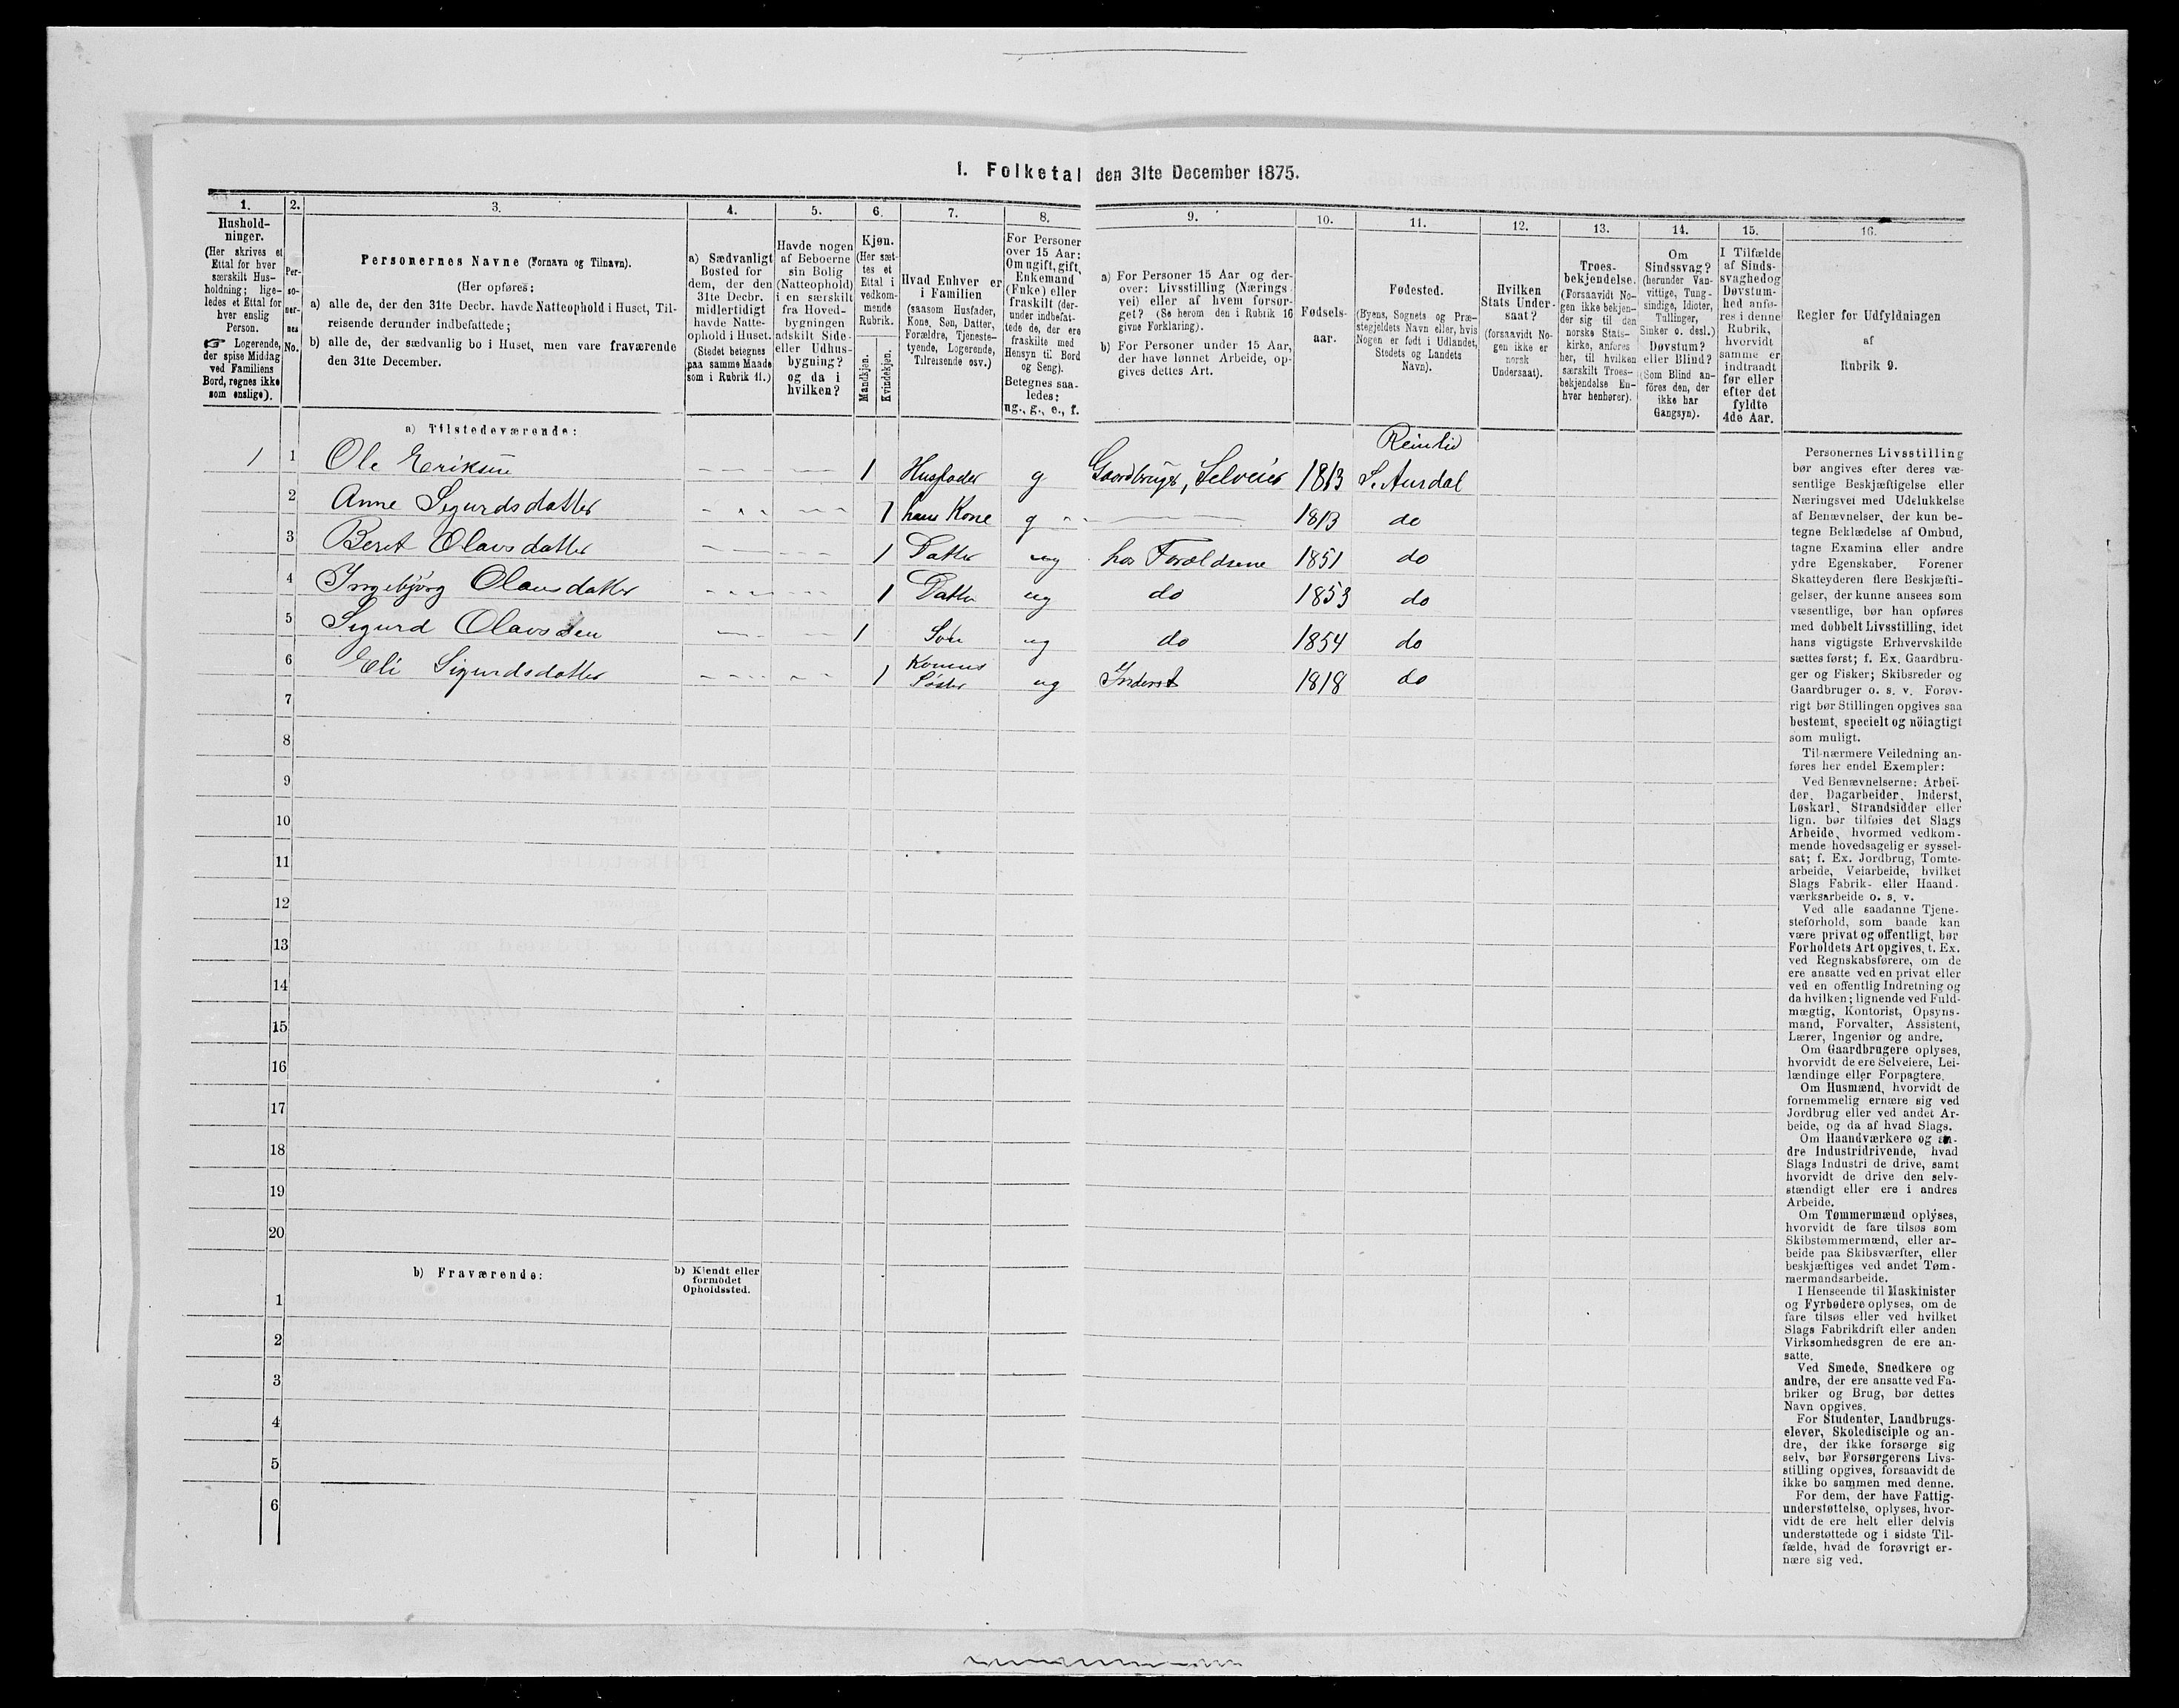 I. Folketal den 31te December 1875.
1. 2. 3. 4. 5. 6. 7. 8. 9. 10. 11. 12. 13. 14. 15. 16.
Hushold-
ninger.
(Her skrives et
Ettal for hver
særskilt Hus-
holdning; lige-
ledes et Ettal for
hver enslig
Person.
☞ Logerende,
der spise Middag
ved Familiens
Bord, regnes ikke
som enslige).
Per-
so-
ner-
nes
No.
Personernes Navne (Fornavn og Tilnavn).
(Her opføres:
a) alle de, der den 31te Decbr. havde Natteophold i Huset, Til-
reisende derunder indbefattede;
b) alle de, der sædvanlig bo i Huset, men vare fraværende
den 31te December.
a) Sædvanligt
Bosted for
dem, der den
31te Decbr.
midlertidigt
havde Natte-
ophold i Huset.
(Stedet betegnes
paa samme Maade
som i Rubrik 11.)
Havde nogen
af Beboerne
sin Bolig
(Natteophold)
i en særskilt
fra Hoved-
bygningen
adskilt Side-
eller Udhus-
bygning?
og da i
hvilken?
Kjøn.
(Her sæt-
tes et
Ettal i
vedkom-
mende
Rubrik.
Mandkjøn.
Kvindekjøn.
Hvad Enhver er
i Familien
(saasom Husfader,
Kone, Søn, Datter,
Forældre, Tjeneste-
tyende, Logerende,
Tilreisende osv.)
For Personer
over 15 Aar:
Om ugift, gift,
Enkemand
(Enke) eller
fraskilt (der-
under indbefat-
tede de, der ere
fraskilte med
Hensyn til Bord
og Seng).
Betegnes saa-
ledes:
ug., g., e., f.
a) For Personer 15 Aar og der-
over: Livsstilling (Nærings-
vei) eller af hvem forsør-
get? (Se herom den i Rubrik 16
givne Forklaring).
b) For Personer under 15 Aar,
der have lønnet Arbeide, op-
gives dettes Art.
Fødsels-
aar.
Fødested.
(Byens, Sognets og Præ-
stegjeldets Navn eller, hvis
Nogen er født i Udlandet,
Stedets og Landets
Navn).
Hvilken
Stats Under-
saat?
(forsaavidt No-
gen ikke er
norsk
Undersaat).
Troes-
bekjendelse.
(Forsaavidt No-
gen ikke bekjen-
der sig til den
norske Stats-
kirke, anføres
her, til hvilken
særskilt Troes-
bekjendelse En-
hver henhører).
Om
Sindssvag?
(herunder Van-
vittige, Tung-
sindige, Idioter,
Tullinger,
Sinker o. desl.)
Døvstum?
eller Blind?
(Som Blind an-
föres den, der
ikke har
Gangsyn).
I Tilfælde
af Sinds-
svaghed og
Døvstum-
hed anfø-
res i denne
Rubrik,
hvorvidt
samme er
indtraadt
før eller
efter det
fyldte
4de Aar.
Regler for Udfyldningen
af
Rubrik 9.
a) Tilstedeværende:
Reinlid
1 1 Ole Eriksen 1 Husfader g Gaardbruger, Selveier 1813 S. Aurdal
2 Anne Sigurdsdatter 1 hans Kone g 1813 do
3 Beret Olavsdatter 1 Datter ug hos Forældrene 1851 do
4 Ingebjørg Olausdatter 1 Datter ug do 1853 do
5 Sigurd Olavssen 1 Søn ug do 1854 do
6 Eli Sigurdsdatter 1 Konens Søster ug Inderst 1818 do
7
8
9
10
11
12
13
14
15
16
17
18
19
20
b) Fraværende:
b) Kjendt eller
formodet
Opholdssted.
1
2
3
4
5
6
Personernes Livsstilling
bør angives efter deres væ-
sentlige Beskjæftigelse eller
Næringsvei med Udelukkelse
af Benævnelser, der kun be-
tegne Beklædelse af Ombud,
tagne Examina eller andre
ydre Egenskaber. Forener
Skatteyderen flere Beskjæfti-
gelser, der kunne ansees som
væsentlige, bør han opføres
med dobbelt Livsstilling, idet
hans vigtigste Erhvervskilde
sættes først; f. Ex. Gaardbru-
ger og Fisker; Skibsreder og
Gaardbruger o. s. v. Forøv-
rigt bør Stillingen opgives saa
bestemt, specielt og nöiagtigt
som muligt.
Til nærmere Veiledning an-
føres her endel Exempler:
Ved Benævnelserne: Arbei-
der, Dagarbeider, Inderst,
Løskarl, Strandsidder eller
lign. bør tilføies det Slags
Arbeide, hvormed vedkom-
mende hovedsagelig er syssel-
sat; f. Ex. Jordbrug, Tomte-
arbeide, Veiarbeide, hvilket
Slags Fabrik- eller Haand-
værksarbeide o. s. v.
Ved alle saadanne Tjene-
steforhold, som baade kan
være privat og offentligt, bør
Forholdets Art opgives, t. Ex.
ved Regnskabsførere, om de
ere ansatte ved en privat eller
ved en offentlig Indretning og
da hvilken; lignende ved Fuld-
mægtig, Kontorist, Opsyns-
mand, Forvalter, Assistent,
Lærer, Ingeniør og andre.
Om Gaardbrugere oplyses,
hvorvidt de ere Selveiere, Lei-
lændinge eller Forpagtere.
Om Husmænd, hvorvidt de
fornemmelig ernære sig ved
Jordbrug eller ved andet Ar-
beide, og da af hvad Slags.
Om Haandværkere og an-
dre Industridrivende, hvad
Slags Industri de drive, samt
hvorvidt de drive den selv-
stændigt eller ere i andres
Arbeide.
Om Tømmermænd oplyses,
hvorvidt de fare tilsøs som
Skibstømmermænd, eller ar-
beide paa Skibsværfter, eller
beskjæftiges ved andet Tøm-
mermandsarbeide.
I Henseende til Maskinister
og Fyrbødere oplyses, om de
fare tilsøs eller ved hvilket
Slags Fabrikdrift eller anden
Virksomhedsgren de ere an-
satte.
Ved Smede, Snedkere og
andre, der ere ansatte ved Fa-
briker og Brug, bør dettes
Navn opgives.
For Studenter, Landbrugs-
elever, Skoledisciple og an-
dre, der ikke forsørge sig
selv, bør Forsørgerens Livs-
stilling opgives, forsaavidt de
ikke bo sammen med denne.
For dem, der have Fattig-
understøttelse, oplyses, hvor-
vidt de ere helt eller delvis
understøttede og i sidste Til-
fælde, hvad de forøvrigt er-
nære sig ved.